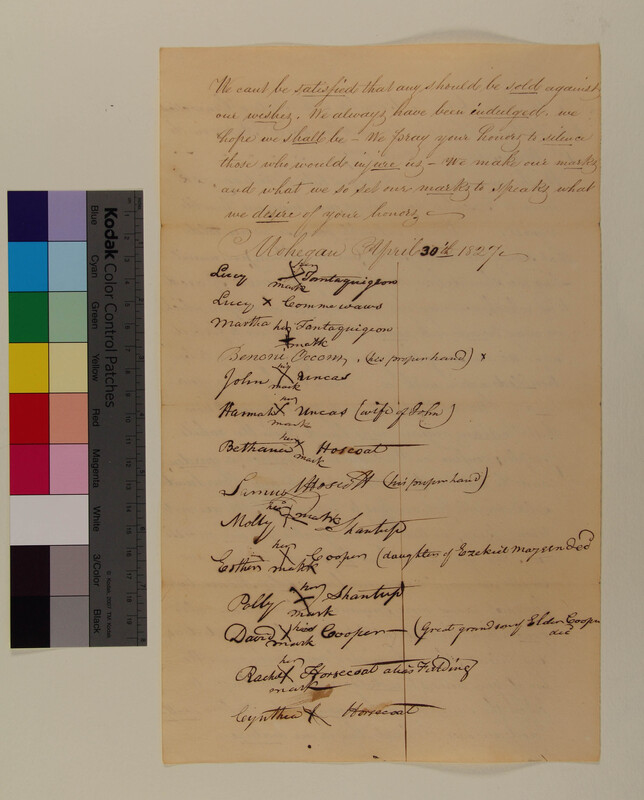 We cant be satisfied that any should be sold against
our wishes. We always have been indulged. we
hope we shall be - We pray your honors to silence
those who would injure us - We make our marks
and what we so set our marks to speaks what
we desire of your honors
Mohegan April 30th 1827
Lucy her X mark Tantaquigeon
Lucy X Commewaws
Martha her mark Tantaquigeon
Benoni Occom, (his proper hand) x
John his X mark Uncas
Hannah her X mark Uncas (wife of John)
Bethanea her X mark Hoscoat
Hoscott (his proper hand)
Molly her X mark Shantup
Esther her X mark Cooper (daughter of Ezekiel decd
Polly her X mark Shantup
David X his mark Cooper (Great grandson of Elder Cooper
decd
Rachel her X mark Horsecoat alias Fielding
Cynthia X Horsecoat
Kodak Color Control Patches
Blue
Cyan
Green
Yellow
Red
Magenta
White
3/Color
Black